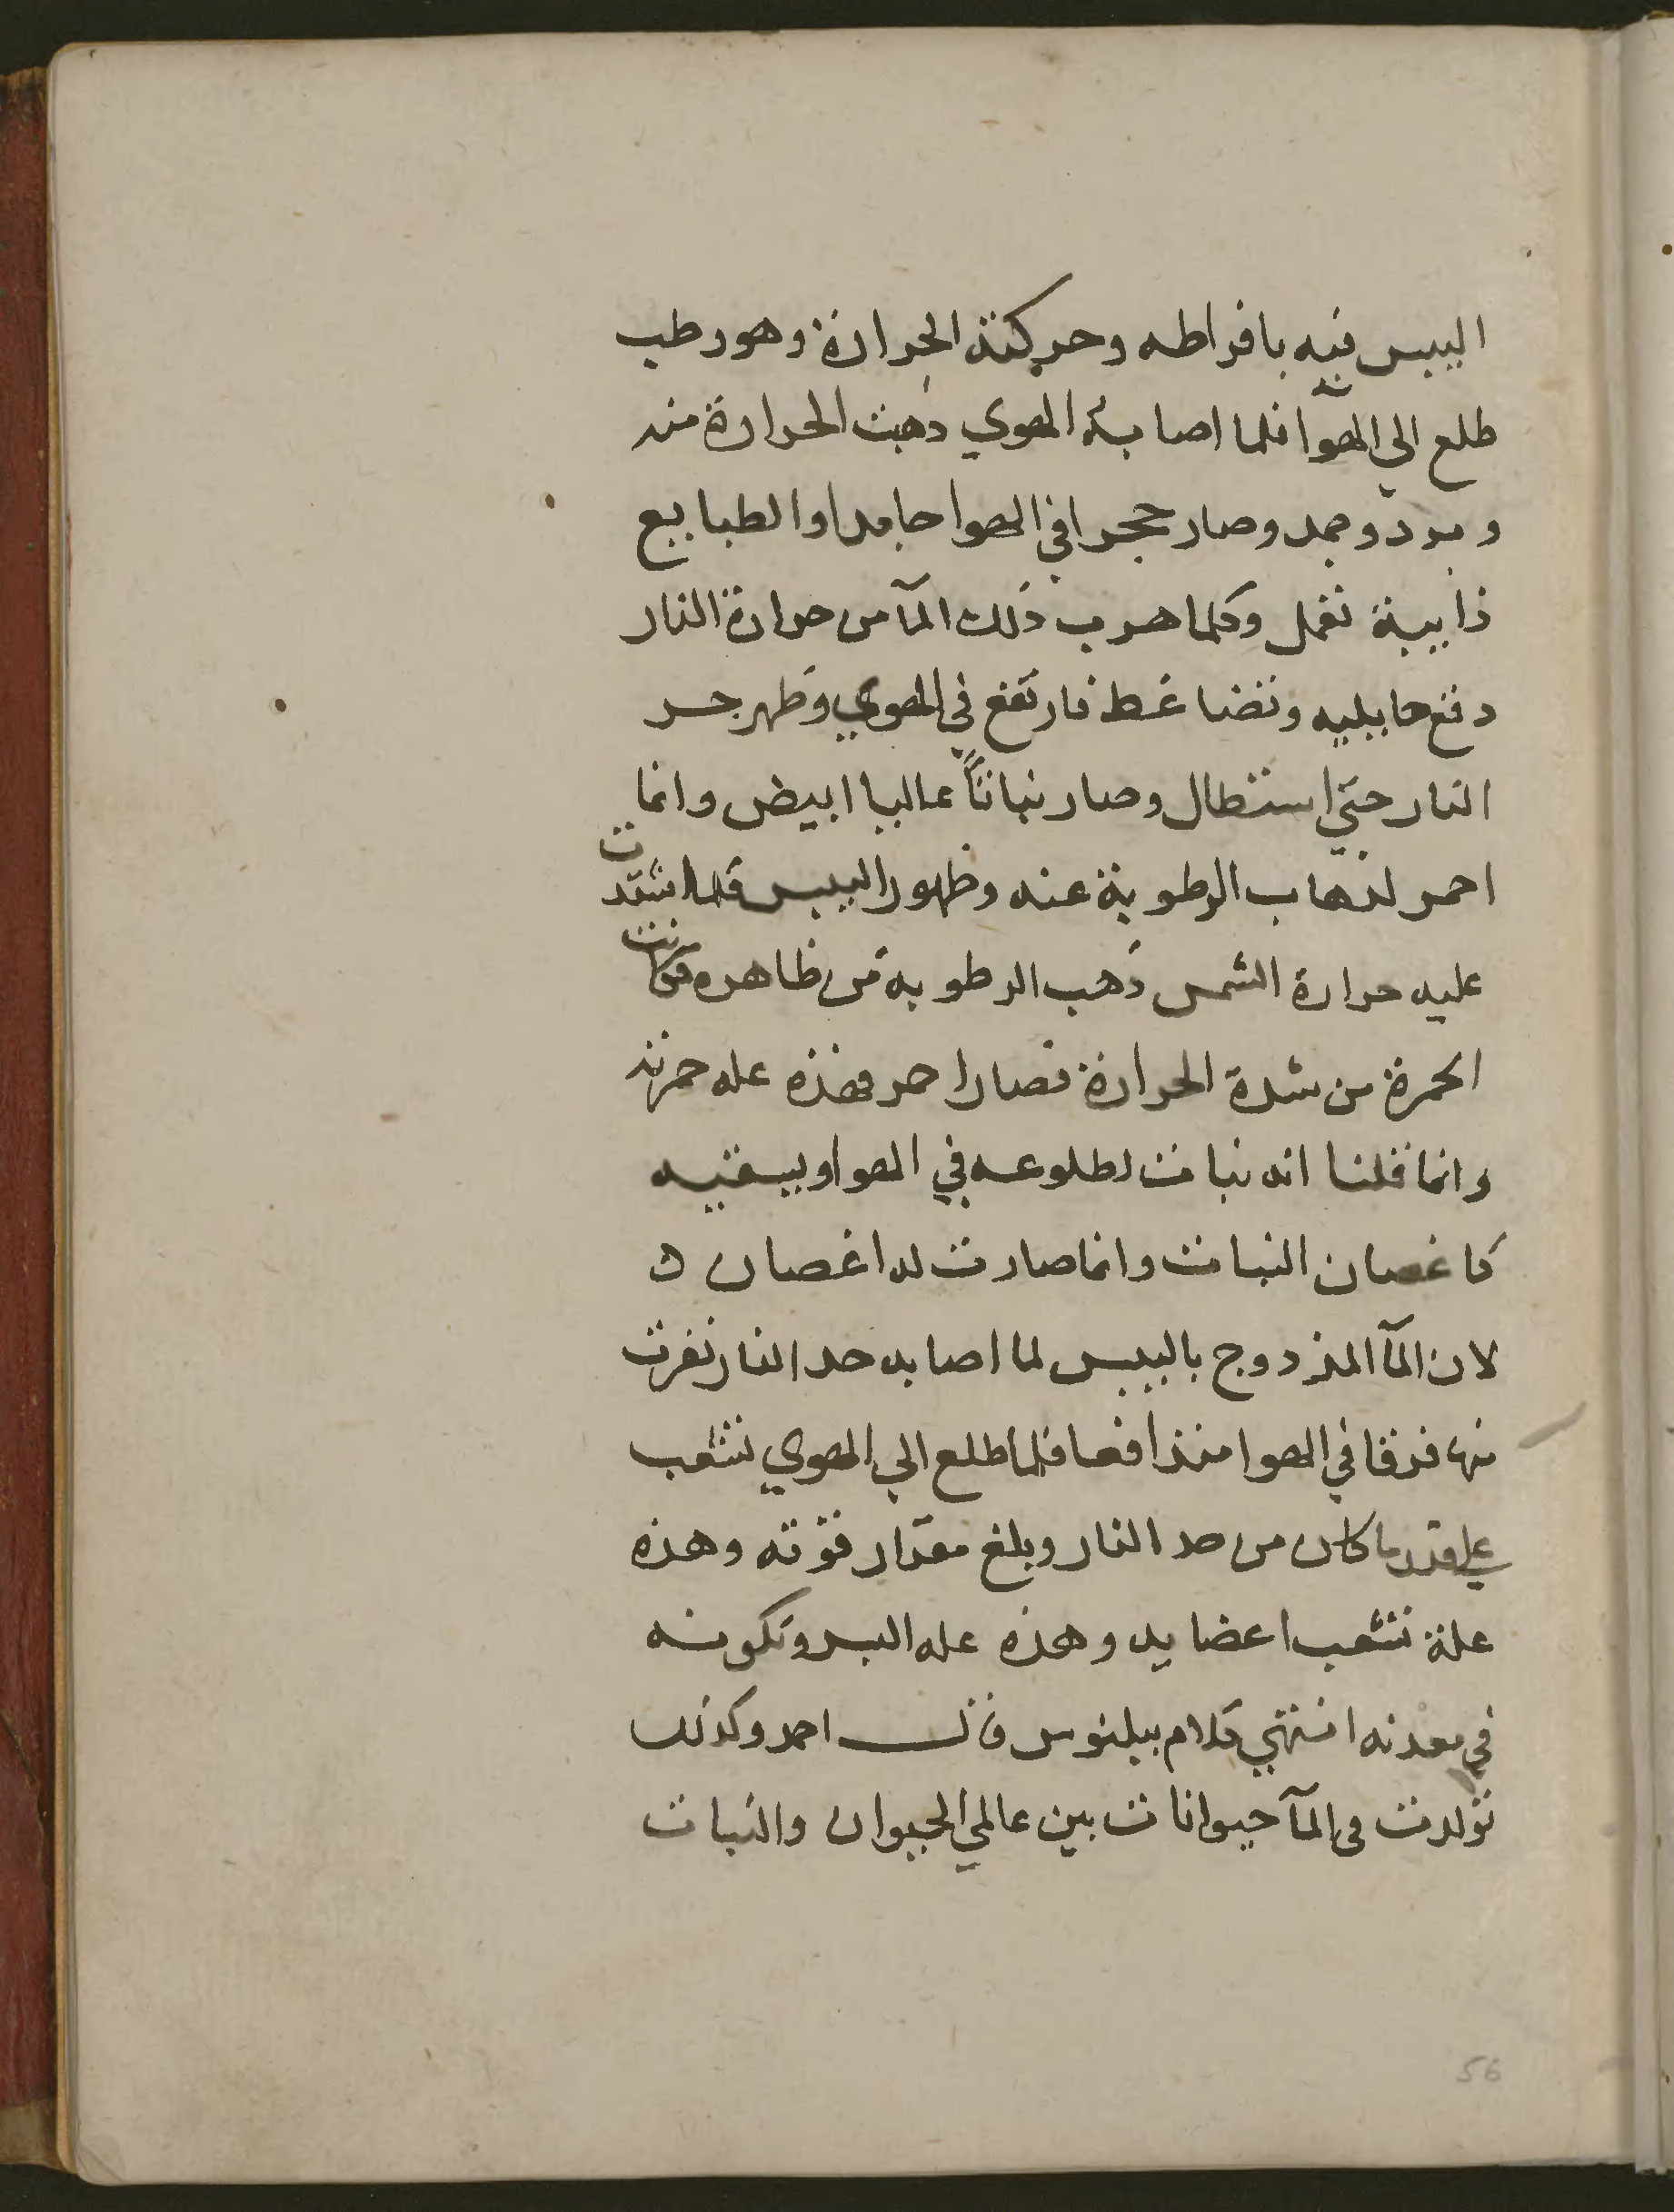 اليبس فيه بافراطه وحركته الحرارة وهو رطب
طلع الي الهوا فلما اصابه الهوي ذهبت الحرارة منه
وبرد وجمد وصار حجرا في الهوا جامدا والطبايع
ذايبة تفعل وكلما هرب ذلك المآ من حرارة النار
دفع مايليه وتضاغط فارتفع في الهوي وظهر حر
النار حتي استطال وصار نباتاً عاليا ابيض وانما
احمر لذهاب الرطوبة عنه وظهور اليبس فلما اشتدت
عليه حرارة الشمس ذهب الرطوبة من ظاهره فكانت
الحمرة من شدة الحرارة فصار احمر فهذه عله حمرته
وانما قلنا انه نبات لطلوعه في الهوا ويسقيه
كاغصان النبات وانما صارت له اغصان ه
لان المآ المزدوج باليبس لما اصابه حد النار تفرق
منها فرقا في الهوا متدافعا فلما طلع الي الهوي تشعب
علي قدر ما كان من حد النار وبلغ مقدار قوته وهذه
علة تشعب اعضايه وهذه عله البسد وتكونه
في معدنه انتهي كلام بيلنوس قال احمد وكذلك
تولدت في المآ حيوانات بين عالمي الحيوان والنبات
56